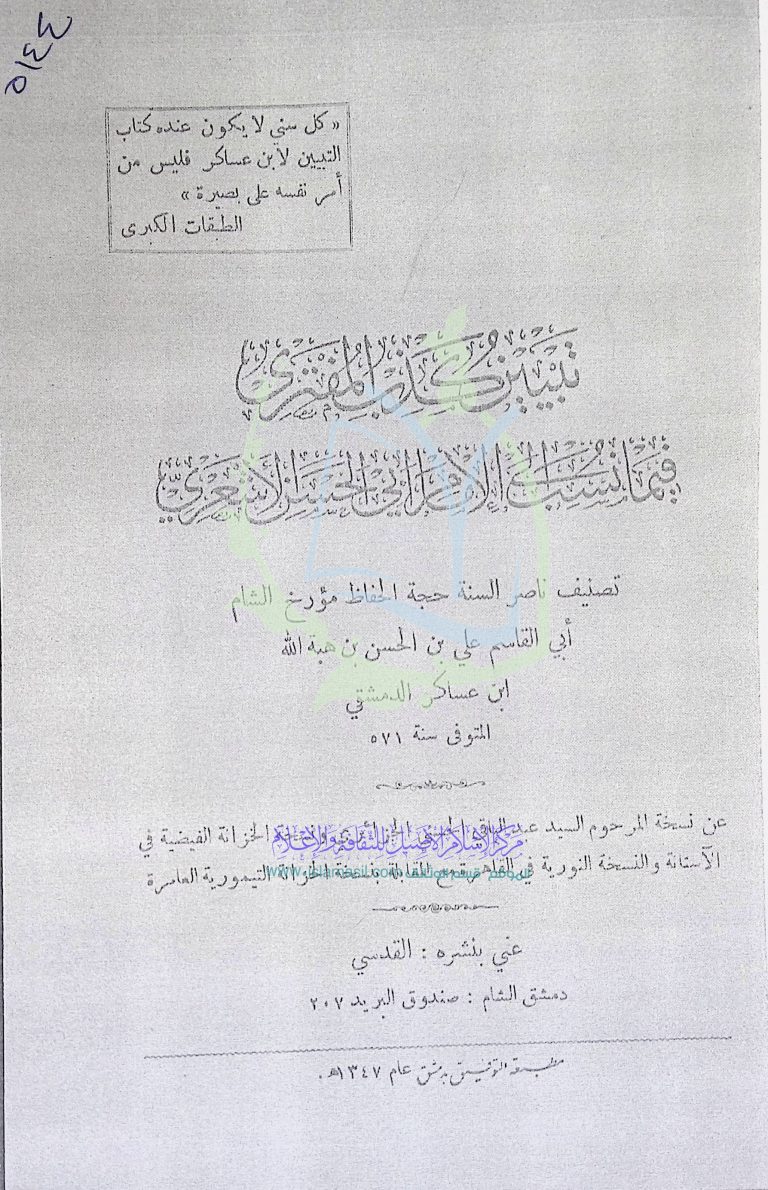 ٥١٤٤
« كل سني لا يكون عنده كتاب
التبيين لابن عساكر فليس من
أمر نفسه على بصيرة »
الطبقات الكبرى
تبيين كذب المفتري
فيما نسب إلى الإمام أبي الحسن الأشعري
تصنيف ناصر السنة حجة الحفاظ مؤرخ الشام
أبي القاسم علي بن الحسن بن هبة الله
ابن عساكر الدمشقي
المتوفى سنة ٥٧١
عن نسخة المرحوم السيد عبد الباقي الحسني الجزائري ونسخة الخزانة الفيضية في
مركز الإسلام الأصيل للثقافة والإعلام
الآستانة والنسخة النورية في القاهرة مع المقابلة بنسخة الخزانة التيمورية العامرة
www.islamasil.com
عني بنشره : القدسي
دمشق الشام : صندوق البريد ٢٠٧
مطبعة التوفيق بدمشق عام ١٣٤٧هـ.